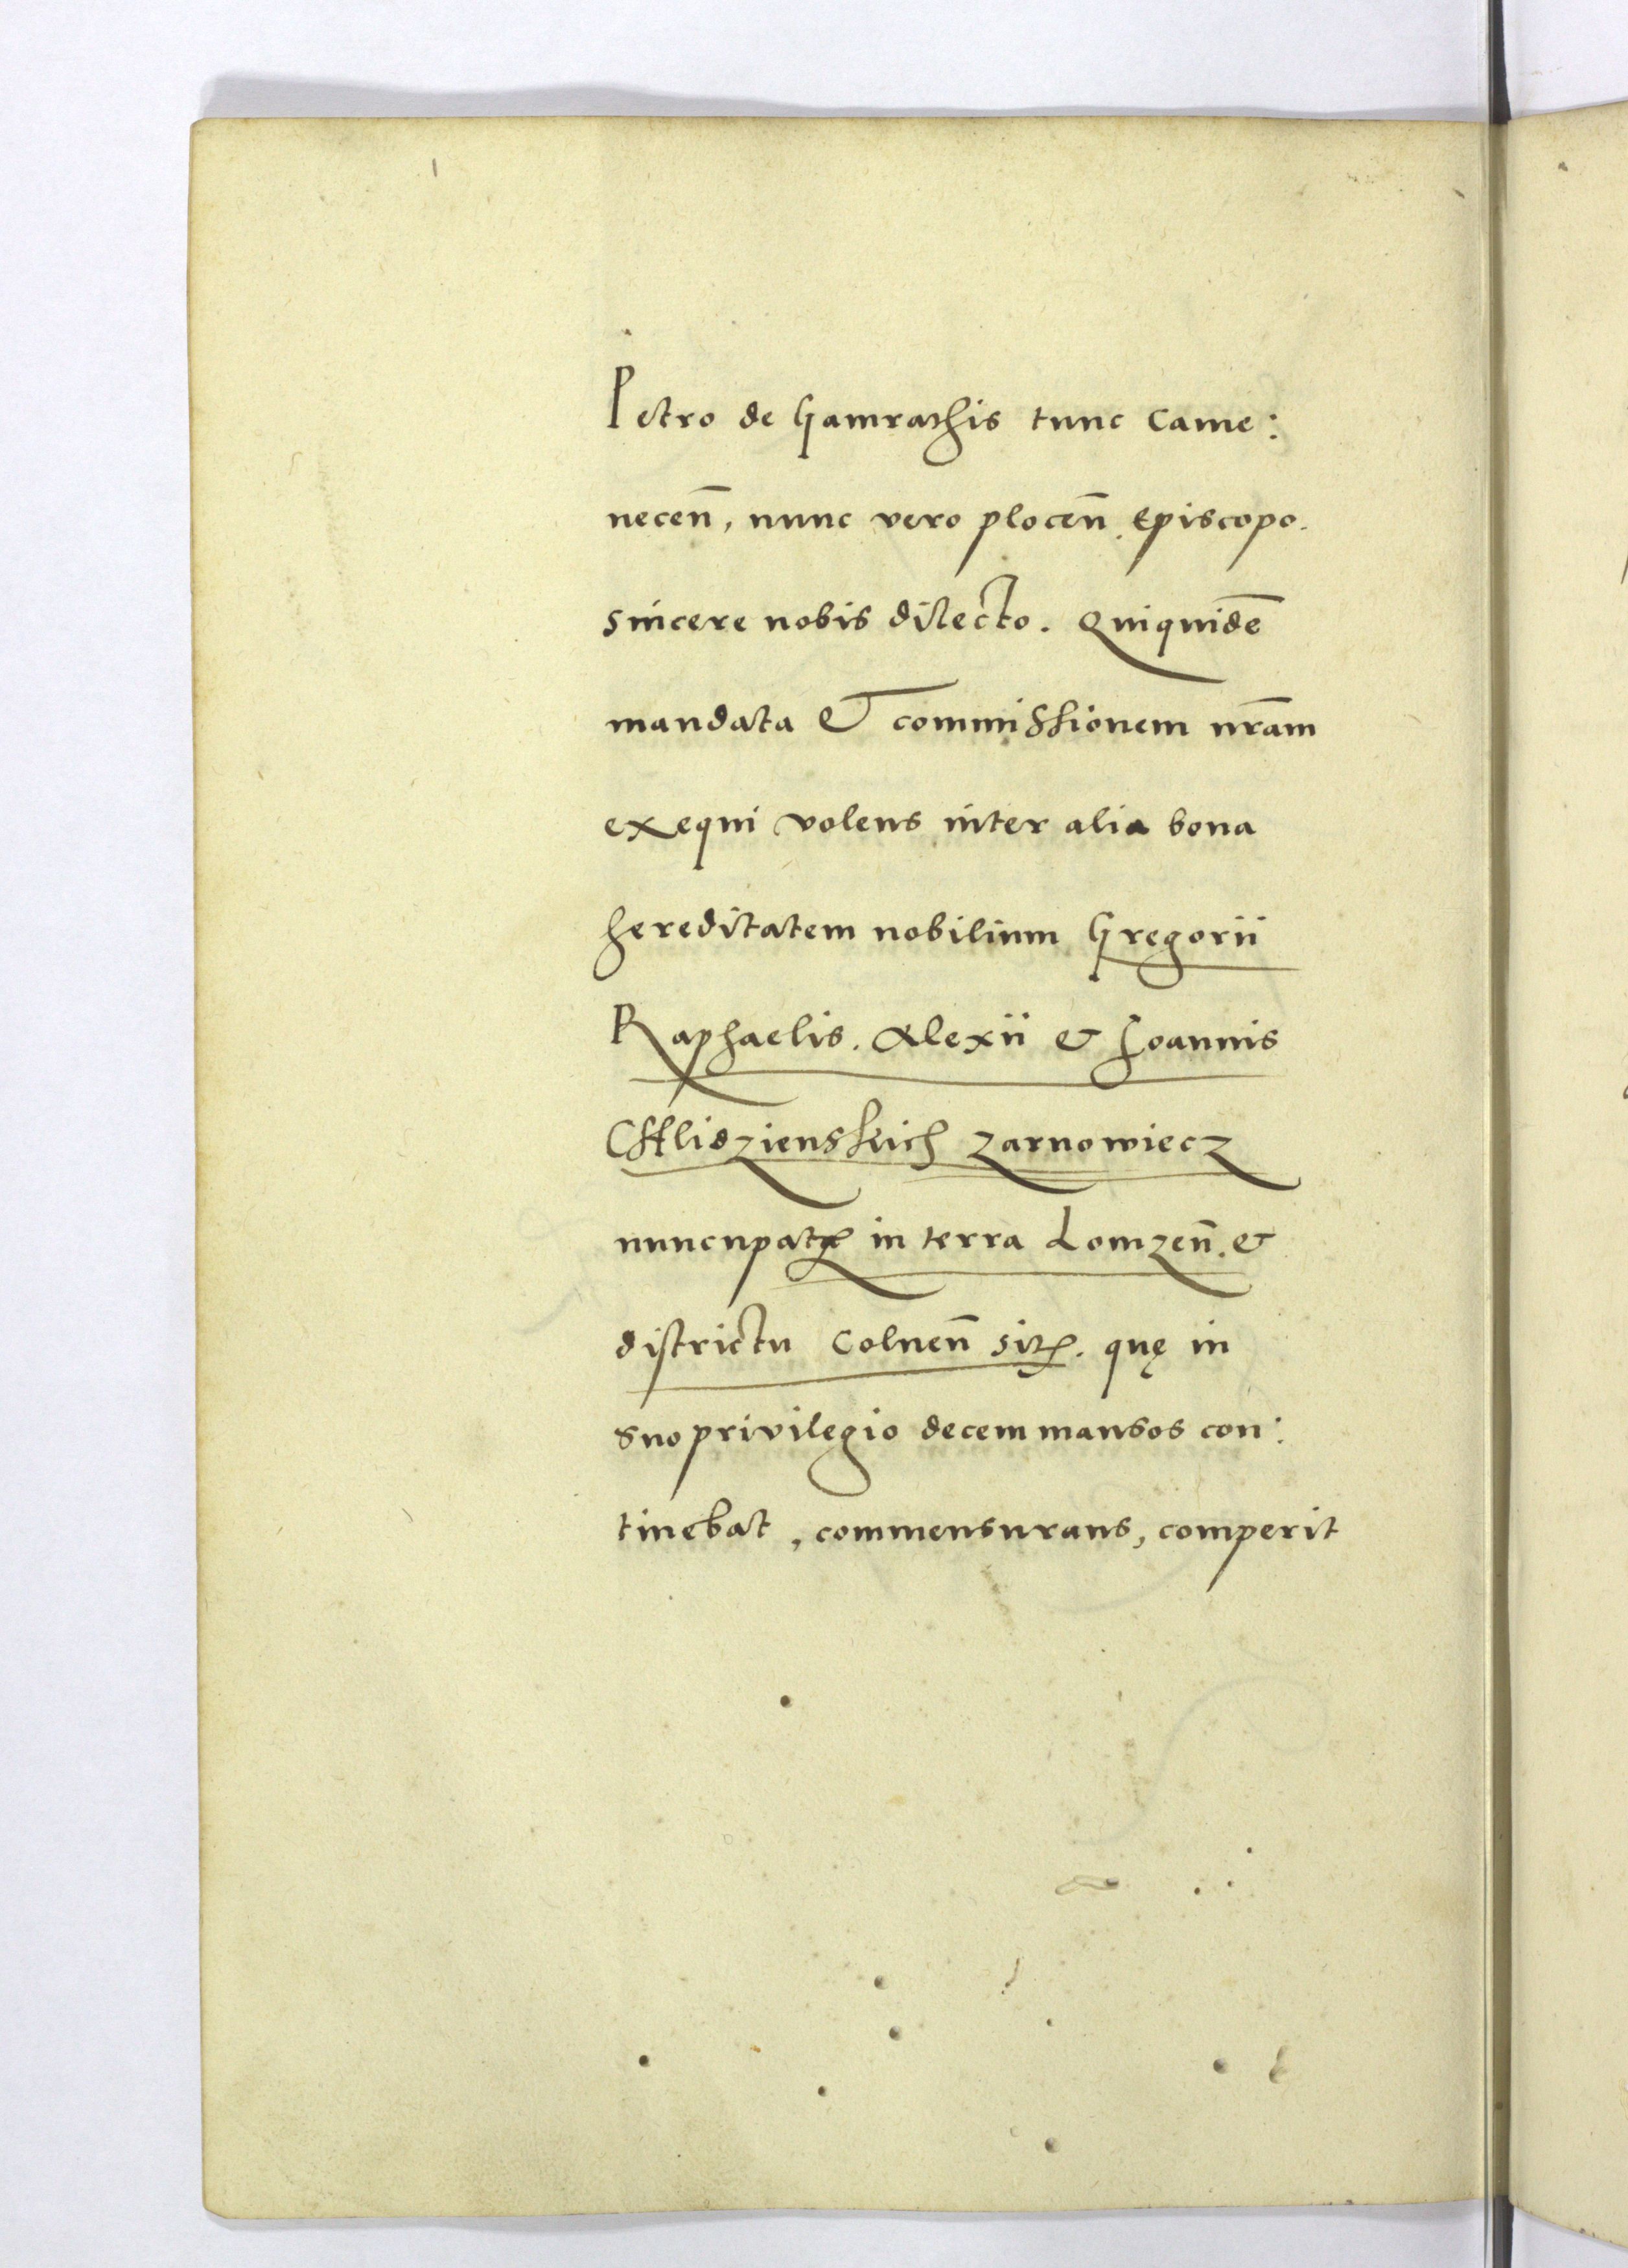 Petro de Gamrathis tunc Came:
necen̄, nunc vero plocen̄. Episcopo.
sincere nobis dilecto. Quiquidē
mandata & commissionem nr̄am
exequi volens inter alia bona
hereditatem nobilium Gregorii
Raphaelis. Alexii & Joannis
Chlidzienskich Zarnowiecz
nuncupatꝝ in terra Lomzen̄. &
districtu Colnen̄ sitꝝ. quę in
suo privilegio decem mansos con:
tinebat, commensurans, comperit